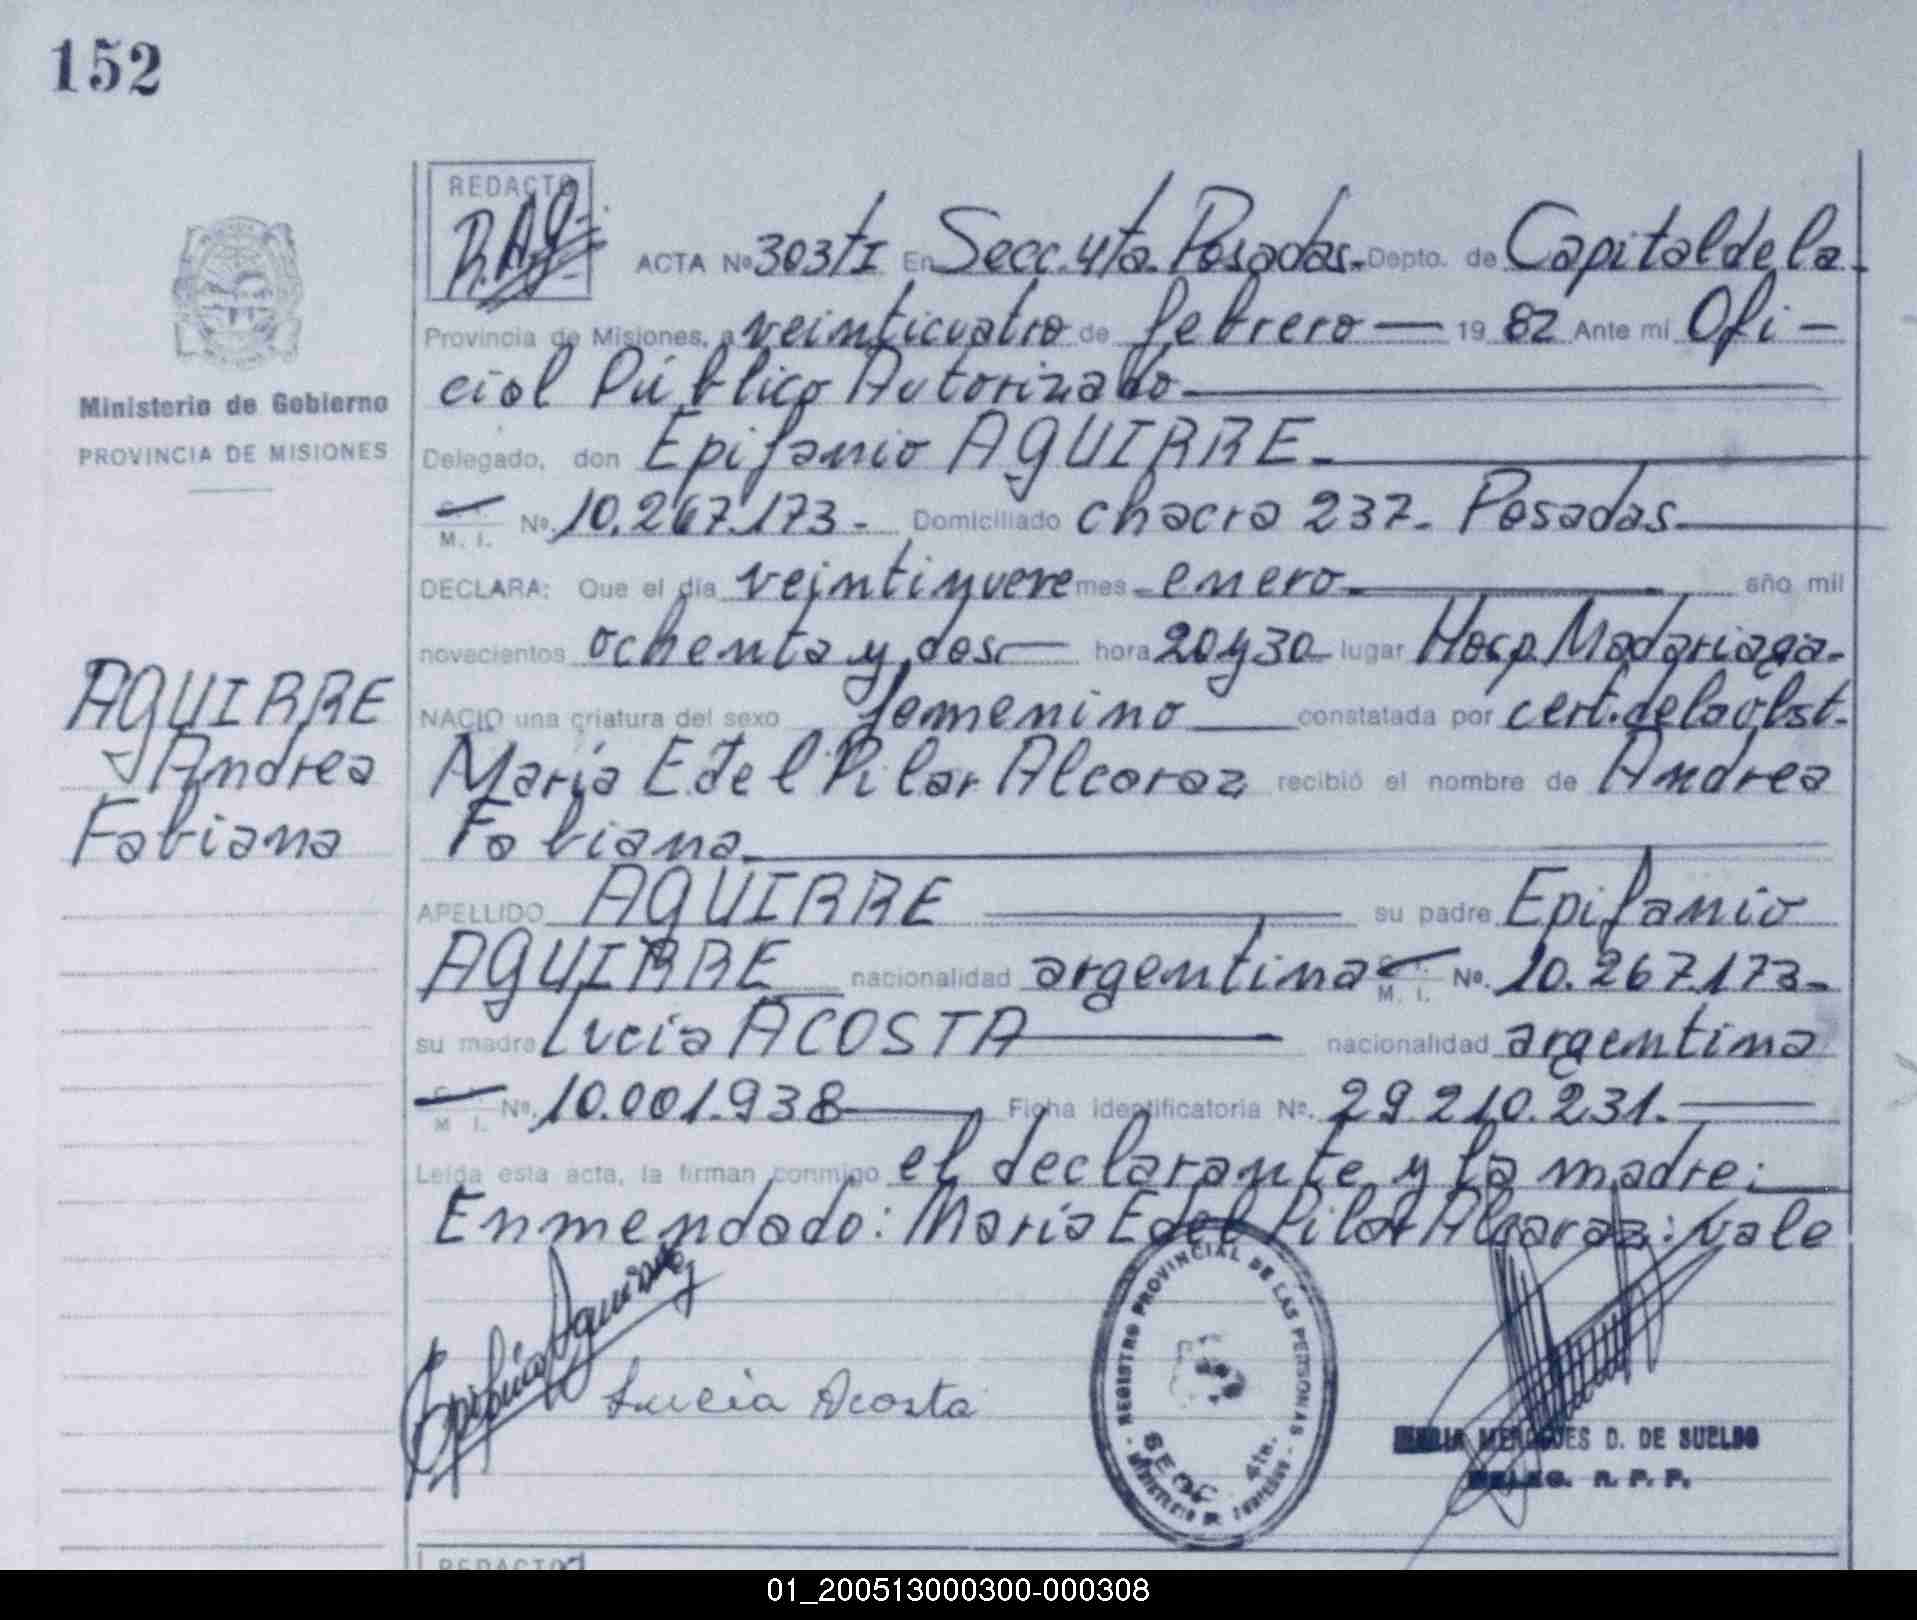 152
REDACTO
ACTA Nº 303/tI En Secc. 4ta. Posadas. Depto. de Capital de la
Provincia de Misiones, a veinticuatro de febrero — 19 82 Ante mí Ofi-
cial Público Autorizado
Ministerio de Gobierno
PROVINCIA DE MISIONES
Delegado, don Epifanio AGUIRRE.
M. I. Nº. 10.267.173.- Domiciliado chacra 237. Posadas.
DECLARA: Que el día veintinueve mes enero año mil
novecientos ochenta y dos — hora 20y30 lugar Hosp. Madariaga.
AGUIRRE
Andrea
Fabiana
NACIO una criatura del sexo femenino constatada por cert. de la obst.
María E. del Pilar Alcaraz recibió el nombre de Andrea
Fabiana
APELLIDO AGUIRRE su padre Epifanio
AGUIRRE nacionalidad argentina M. I. Nº. 10.267.173.-
su madre Lucia ACOSTA nacionalidad argentina
M I. Nº. 10.001.938 Ficha identificatoria Nº. 29.210.231.
Leída esta acta, la firman conmigo el declarante y la madre:
Enmendado: María E del Pilar Alcaraz: vale
Epifanio Aguirre
Lucia Acosta
REGISTRO PROVINCIAL DE LAS PERSONAS
SECC. 4ta.
MINISTERIO DE GOBIERNO
D. DE SUELDO
DELEG. R. P. P.
REDACTO
01_200513000300-000308